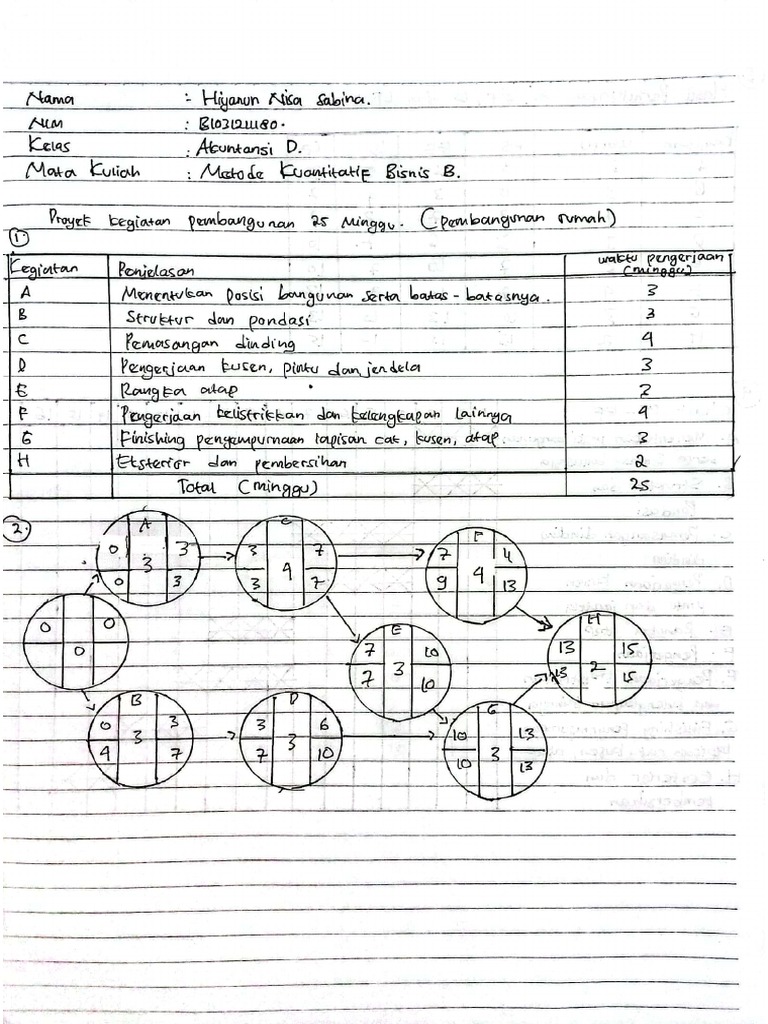 Nama : Hiyarun Nisa Sabina.
NIM : B1031211180.
Kelas : Akuntansi D.
Mata Kuliah : Metode Kuantitatif Bisnis B.
Proyek kegiatan pembangunan 25 Minggu. (pembangunan rumah)
1.
Kegiatan Penjelasan waktu pengerjaan (minggu)
A Menentukan posisi bangunan serta batas-batasnya. 3
B Struktur dan pondasi 3
C Pemasangan dinding 4
D Pengerjaan kusen, pintu dan jendela 3
E Rangka atap 2
F Pengerjaan kelistrikkan dan kelengkapan lainnya 4
G Finishing penyempurnaan lapisan cat, kusen, atap. 3
H Eksterior dan pembersihan 2
Total (minggu) 25
2.
A 0 3 3 0 3
C 3 4 7 3 7
F 7 4 4 9 13
0 0 0
E 7 3 10 7 10
H 13 2 15 13 15
B 0 3 3 4 7
D 3 3 6 7 10
G 10 3 13 10 13